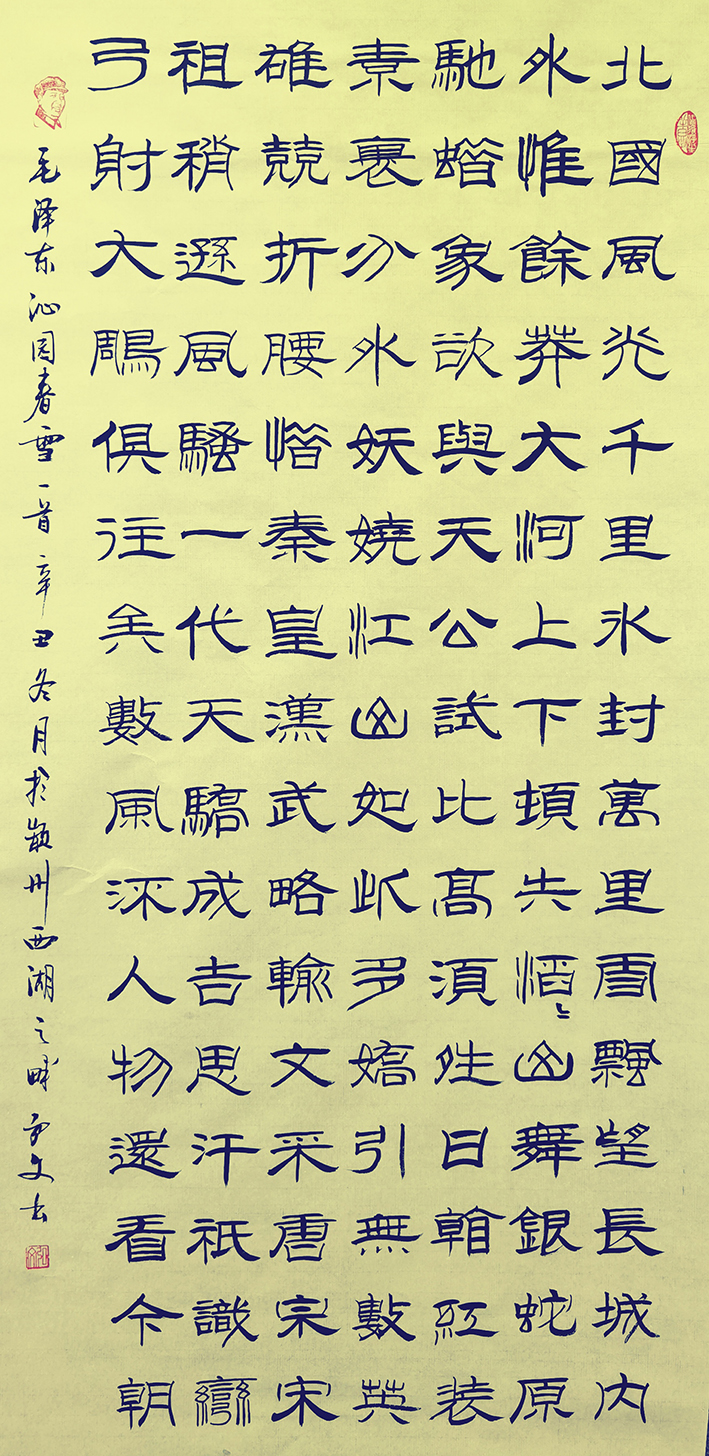 北國風光千里氷封萬里雪飄望長城内
外惟餘莽大河上下頓失滔〻山舞銀蛇原
馳蜡象欲與天公試比高須夝日看紅装
素裹分外妖嬈江山如此多嬌引無數英
雄競折腰惜秦皇漢武略輸文采唐宗宋
祖稍遜風騷一代天驕成吉思汗祇識彎
弓射大鵰俱往矣數風流人物還看今朝
毛泽东沁园春雪一首辛丑冬月於颍州西湖之畔文书